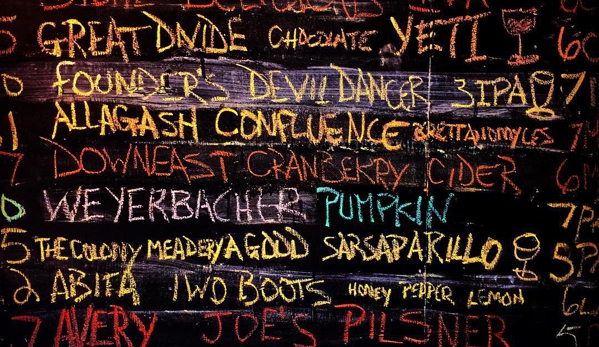 5 GREAT DIVIDE CHOCOLATE YETI 60
0 FOUNDERS DEVIL DANCER 3IPA 7
.1 ALLAGASH CONFLUENCE BRETTANOMYCES 7
7 DOWNEAST CRANBERRY CIDER 6
0 WEYERBACHER PUMPKIN 7P
5 THE COLONY MEADERY A GOOD SARSAPARILLO 5P
2 ABITA TWO BOOTS HONEY PEPPER LEMON 6
7 AVERY JOE'S PILSNER 5